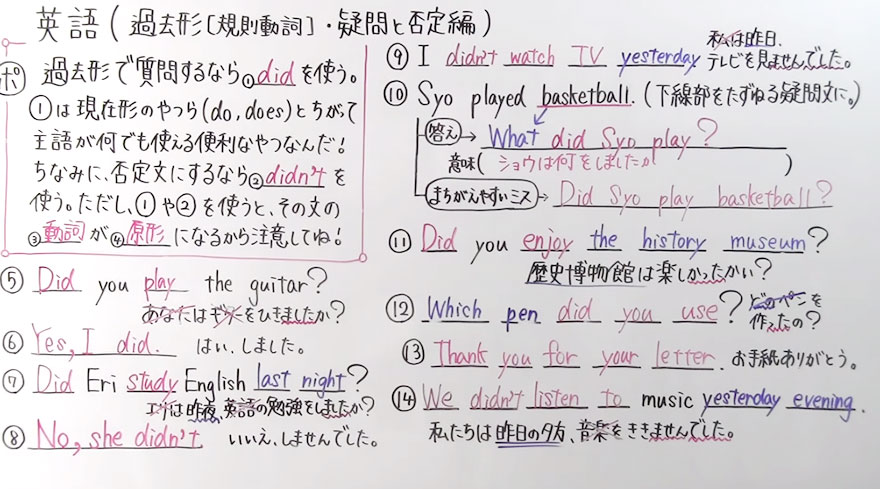 英語(過去形[規則動詞]・疑問と否定編)
ポ
過去形で質問するなら①didを使う。
①は現在形のやつら(do, does)とちがって
主語が何でも使える便利なやつなんだ!
ちなみに、否定文にするなら②didn'tを
使う。ただし、①や②を使うと、その文の
③動詞が④原形になるから注意してね!
⑤ Did you play the guitar?
あなたはギターをひきましたか?
⑥ Yes, I did. はい、しました。
⑦ Did Eri study English last night?
エリは昨夜、英語の勉強をしましたか?
⑧ No, she didn't. いいえ、しませんでした。
⑨ I didn't watch TV yesterday
私は昨日、
テレビを見ませんでした。
⑩ Syo played basketball. (下線部をたずねる疑問文に。)
答え→ What did Syo play?
意味(ショウは何をしましたか)
まちがえやすいミス→ Did Syo play basketball?
⑪ Did you enjoy the history museum?
歴史博物館は楽しかったかい?
⑫ Which pen did you use?
どのペンを
作ったの?
⑬ Thank you for your letter. お手紙ありがとう。
⑭ We didn't listen to music yesterday evening.
私たちは昨日の夕方、音楽をききませんでした。